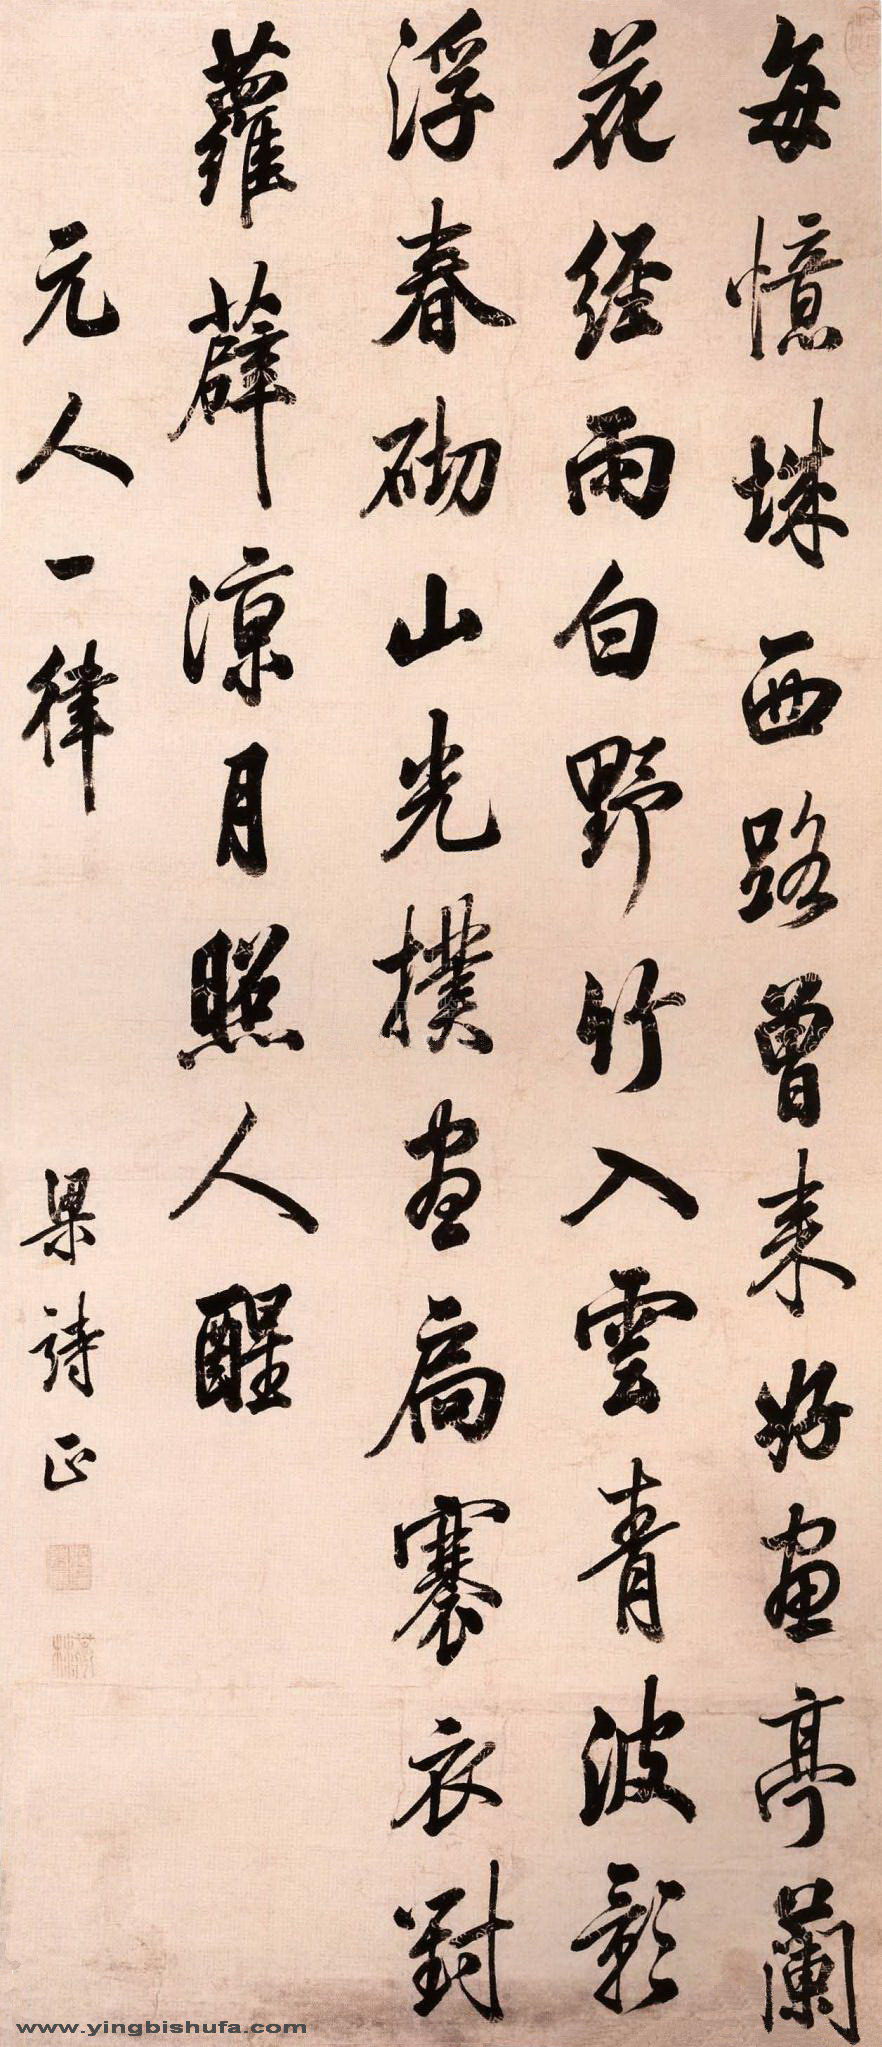 每憶城西路曾来好畫亭蘭
花經雨白野竹入雲青波影
浮春砌山光撲畫扃褰衣對
蘿薜涼月照人醒
元人一律
梁詩正
www.yingbishufa.com